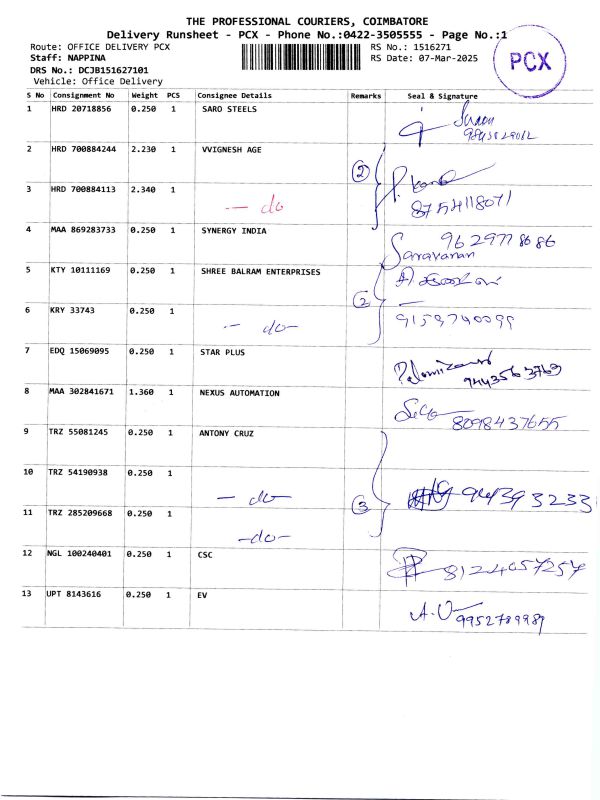 THE PROFESSIONAL COURIERS, COIMBATORE
Delivery Runsheet - PCX - Phone No.:0422-3505555 - Page No.:1
Route: OFFICE DELIVERY PCX RS No.: 1516271
Staff: NAPPINA RS Date: 07-Mar-2025
DRS No.: DCJB151627101
Vehicle: Office Delivery
PCX
S No Consignment No Weight PCS Consignee Details Remarks Seal & Signature
1 HRD 20718856 0.250 1 SARO STEELS
2 HRD 700884244 2.230 1 VVIGNESH AGE
2
3 HRD 700884113 2.340 1 - do 8754118071
4 MAA 869283733 0.250 1 SYNERGY INDIA 9629778686
Saravanan
5 KTY 10111169 0.250 1 SHREE BALRAM ENTERPRISES
2
6 KRY 33743 0.250 1 - do-
7 EDQ 15069095 0.250 1 STAR PLUS
9443563763
8 MAA 302841671 1.360 1 NEXUS AUTOMATION
8098437655
9 TRZ 55081245 0.250 1 ANTONY CRUZ
10 TRZ 54190938 0.250 1 - do- 944393233
3
11 TRZ 285209668 0.250 1 -do-
12 NGL 100240401 0.250 1 CSC 8124057257
13 UPT 8143616 0.250 1 EV A.V 9952789989